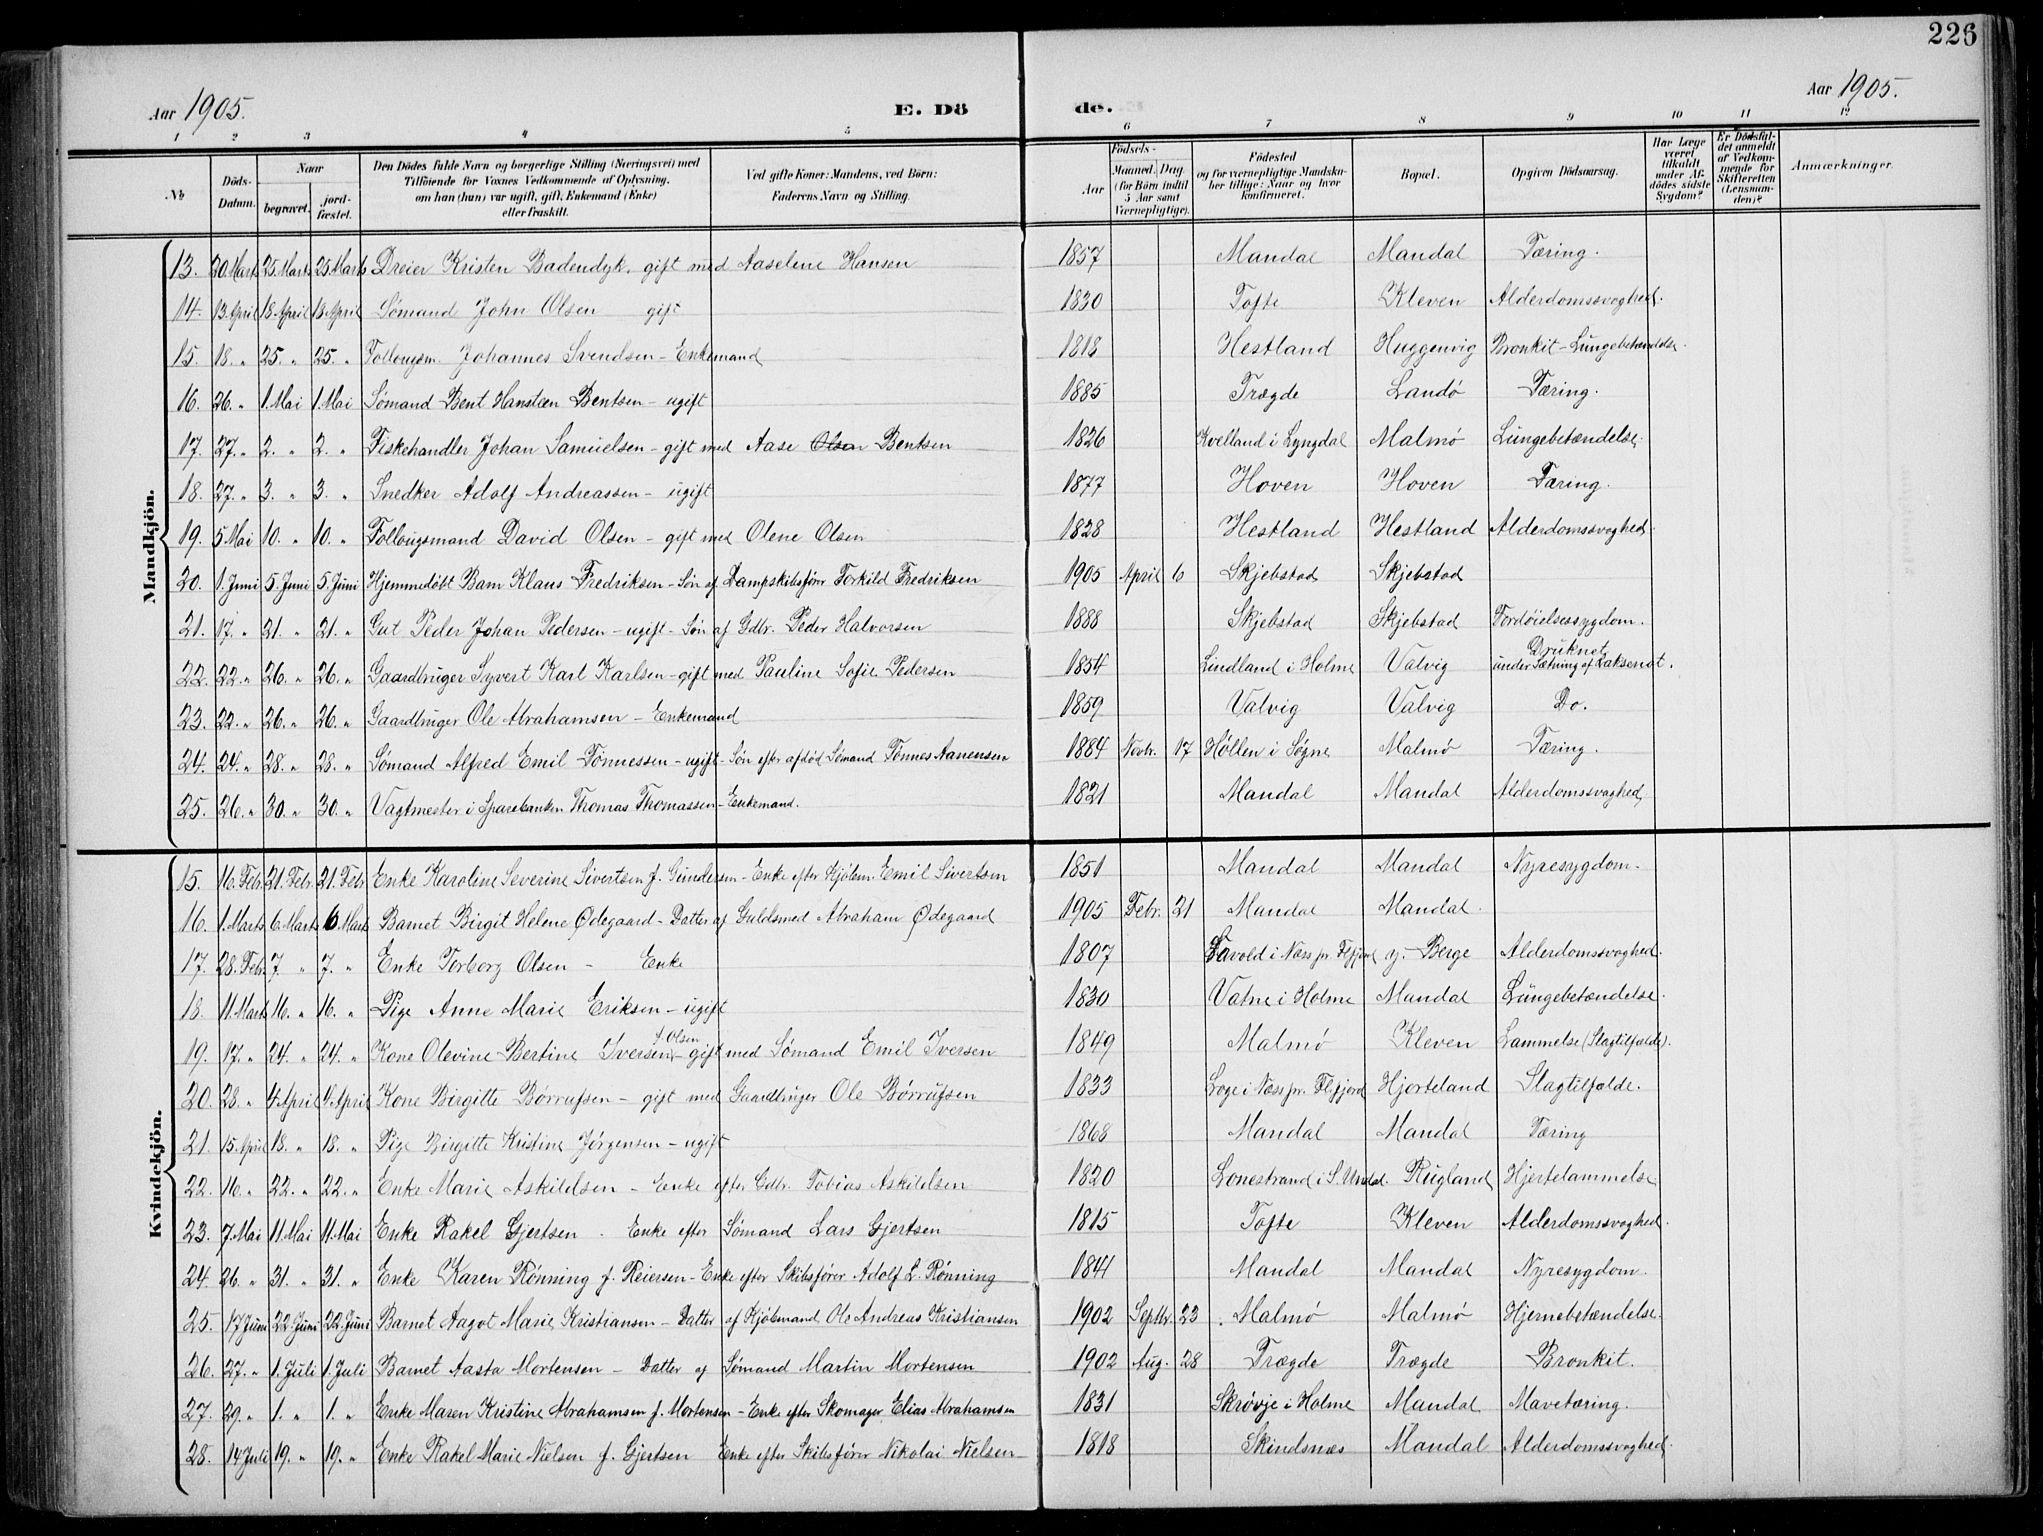 226
Aar 1905. E. Dö de. Aar 1905.
1 2 3 4 5 6 7 8 9 10 11 12
№ Döds-Datum. Naar begravet. jord-fæstet. Den Dödes fulde Navn og borgerlige Stilling (Næringsvei) med Tilföiende for Voxnes Vedkommende af Oplysning. om han (hun) var ugift, gift, Enkemand (Enke) eller fraskilt. Ved gifte Koner: Mandens, ved Börn: Faderens Navn og Stilling. Födsels- Aar Maaned. Dag. (for Börn indtil 5 Aar samt Værnepligtige). Födested og for værnepligtige Mandskaber tillige: Naar og hvor konfirmeret. Bopæl. Opgiven Dödsaarsag. Har Læge været tilkaldt under Afdödes sidste Sygdom? Er Dödsfaldet anmeldt af Vedkommende for Skifteretten (Lensmanden)? Anmærkninger.
Mandkjön.
13. 20. Marts 25. Marts 25. Marts Dreier Kristen Badendyk. gift med Aaselene Hansen 1857 Mandal Mandal Tæring.
14. 13. April 18. April 18. April Sømand John Olsen gift 1830 Tofte Kleven Alderdomssvaghed.
15. 18. " 25. " 25. " Follougsm. Johannes Svendsen - Enkemand 1818 Hestland Huggenvig Bronkit - Lungebetændelse.
16. 26. " 1. Mai 1. Mai Sømand Bent Hansteen Bentsen - ugift 1885 Trægde Landø Tæring.
17. 27. " 2. " 2. " Fiskehandler Johan Samuelsen - gift med Aase Olsen Bentsen 1826 Kvelland i Lyngdal Malmø Lungebetændelse.
18. 27. " 3. " 3. " Snedker Adolf Andreassen - ugift 1877 Hoven Hoven Tæring.
19. 5 Mai 10. " 10. " Follougsmand David Olsen - gift med Olene Olsen 1828 Hestland Hestland Alderdomssvaghed.
20. 1. Juni 5. Juni 5. Juni Hjemmedöbt Barn Klaus Fredriksen - Søn af Dampskibsfører Torkild Fredriksen 1905 April 6 Skjebstad Skjebstad
21. 17. " 21. " 21. " Gut Peder Johan Pedersen - ugift - Søn af Gdbr. Peder Halvorsen 1888 Skjebstad Skjebstad Fordøielsessygdom.
22. 22. " 26. " 26. " Gaardbruger Syvert Karl Karlsen - gift med Pauline Sofie Pedersen 1854 Lindland i Holme Valvig Druknet under Sætning af Laksenot.
23. 22. " 26. " 26. " Gaardbruger Ole Abrahamsen - Enkemand 1859 Valvig Valvig Do.
24. 24. " 28. " 28. " Sømand Alfred Emil Tønnessen - ugift - Søn efter afdød Sømand Tønnes Aanensen 1884 Novbr. 17 Høllen i Søgne Malmø Tæring.
25. 26. " 30. " 30. " Vagtmester i Sparebanken Thomas Thomassen - Enkemand. 1821 Mandal Mandal Alderdomssvaghed
Kvindekjön.
15. 16. Febr. 21. Febr. 21. Febr Enke Karoline Severine Sivertsen f. Gundersen - Enke efter Kjøbm. Emil Sivertsen 1851 Mandal Mandal Nyresygdom.
16. 1. Marts 6. Marts 6. Marts Barnet Birgit Helene Ødegaard - Datter af Guldsmed Abraham Ødegaard 1905 Febr. 21 Mandal Mandal.
17. 28. Febr. 7 " 7. " Enke Torborg Olsen - Enke 1807 i Næss pr. Flefjord y. Berge Alderdomssvaghed.
18. 11. Marts 16. " 16. " Pige Anne Marie Eriksen - ugift 1830 Vatne i Holme Mandal Lungebetændelse.
19. 17. " 24. " 24. " Kone Olevine Bertine Iversen f. Olsen - gift med Sømand Emil Iversen 1849 Malmø Kleven Lammelse (Slagtilfælde).
20. 28. " 4. April 4. April Kone Birgitte Børrufsen - gift med Gaardbruger Ole Børrufsen 1833 Loge i Næss pr. Flefjord Hjorteland Slagtilfælde.
21. 15. April 18. " 18. " Pige Birgitte Kristine Jørgensen - ugift 1868 Mandal Mandal Tæring
22. 16. " 22. " 22. " Enke Marie Askildsen - Enke efter Gdbr. Tobias Askildsen 1820 Lonestrand i S. Undal. Rugland Hjertelammelse
23. 7. Mai 11. Mai 11. Mai Enke Rakel Gjertsen . Enke efter Sømand Lars Gjertsen 1815 Tofte Kleven Alderdomssvaghed.
24. 26. " 31. " 31. " Enke Karen Rønning f. Reiersen - Enke efter Skibsfører Adolf L. Rønning 1841 Mandal Mandal Nyresygdom.
25. 17 Juni 22. Juni 22. Juni Barnet Aagot Marie Kristiansen - Datter af Kjøbmand Ole Andreas Kristiansen 1902 Septbr. 23 Malmø Malmø Hjernebetændelse.
26. 27. " 1. Juli 1. Juli Barnet Aasta Mortensen - Datter af Sømand Martin Mortensen 1902 Aug. 28 Trægde Trægde Bronkit.
27. 29. " 1. " 1. " Enke Maren Kristine Abrahamsen f. Mortensen - Enke efter Skomager Elias Abrahamsen 1831 Skrøvje i Holme Mandal Mavetæring.
28. 14 Juli 19. " 19. " Enke Rakel Marie Nielsen f. Gjertsen Enke efter Skibsfører Nikolai Nielsen 1818 Skindsnæs Mandal Alderdomssvaghed.